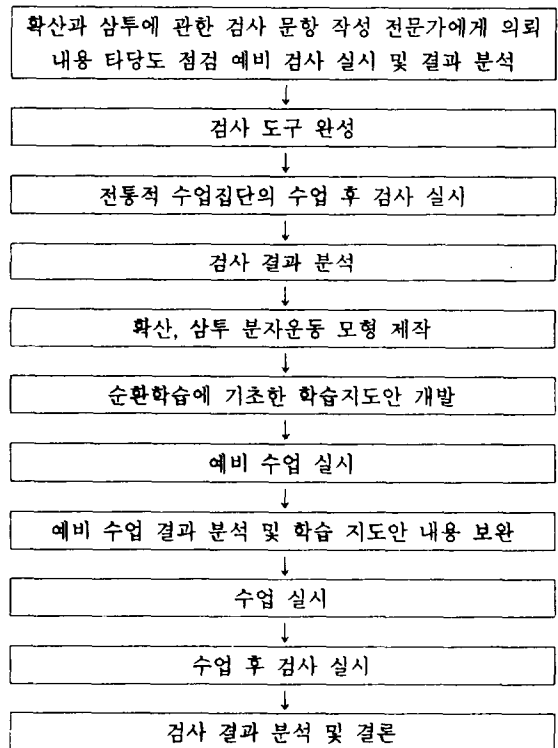 확산과 삼투에 관한 검사 문항 작성 전문가에게 의뢰
내용 타당도 점검 예비 검사 실시 및 결과 분석
↓
검사 도구 완성
↓
전통적 수업집단의 수업 후 검사 실시
↓
검사 결과 분석
↓
확산, 삼투 분자운동 모형 제작
↓
순환학습에 기초한 학습지도안 개발
↓
예비 수업 실시
↓
예비 수업 결과 분석 및 학습 지도안 내용 보완
↓
수업 실시
↓
수업 후 검사 실시
↓
검사 결과 분석 및 결론